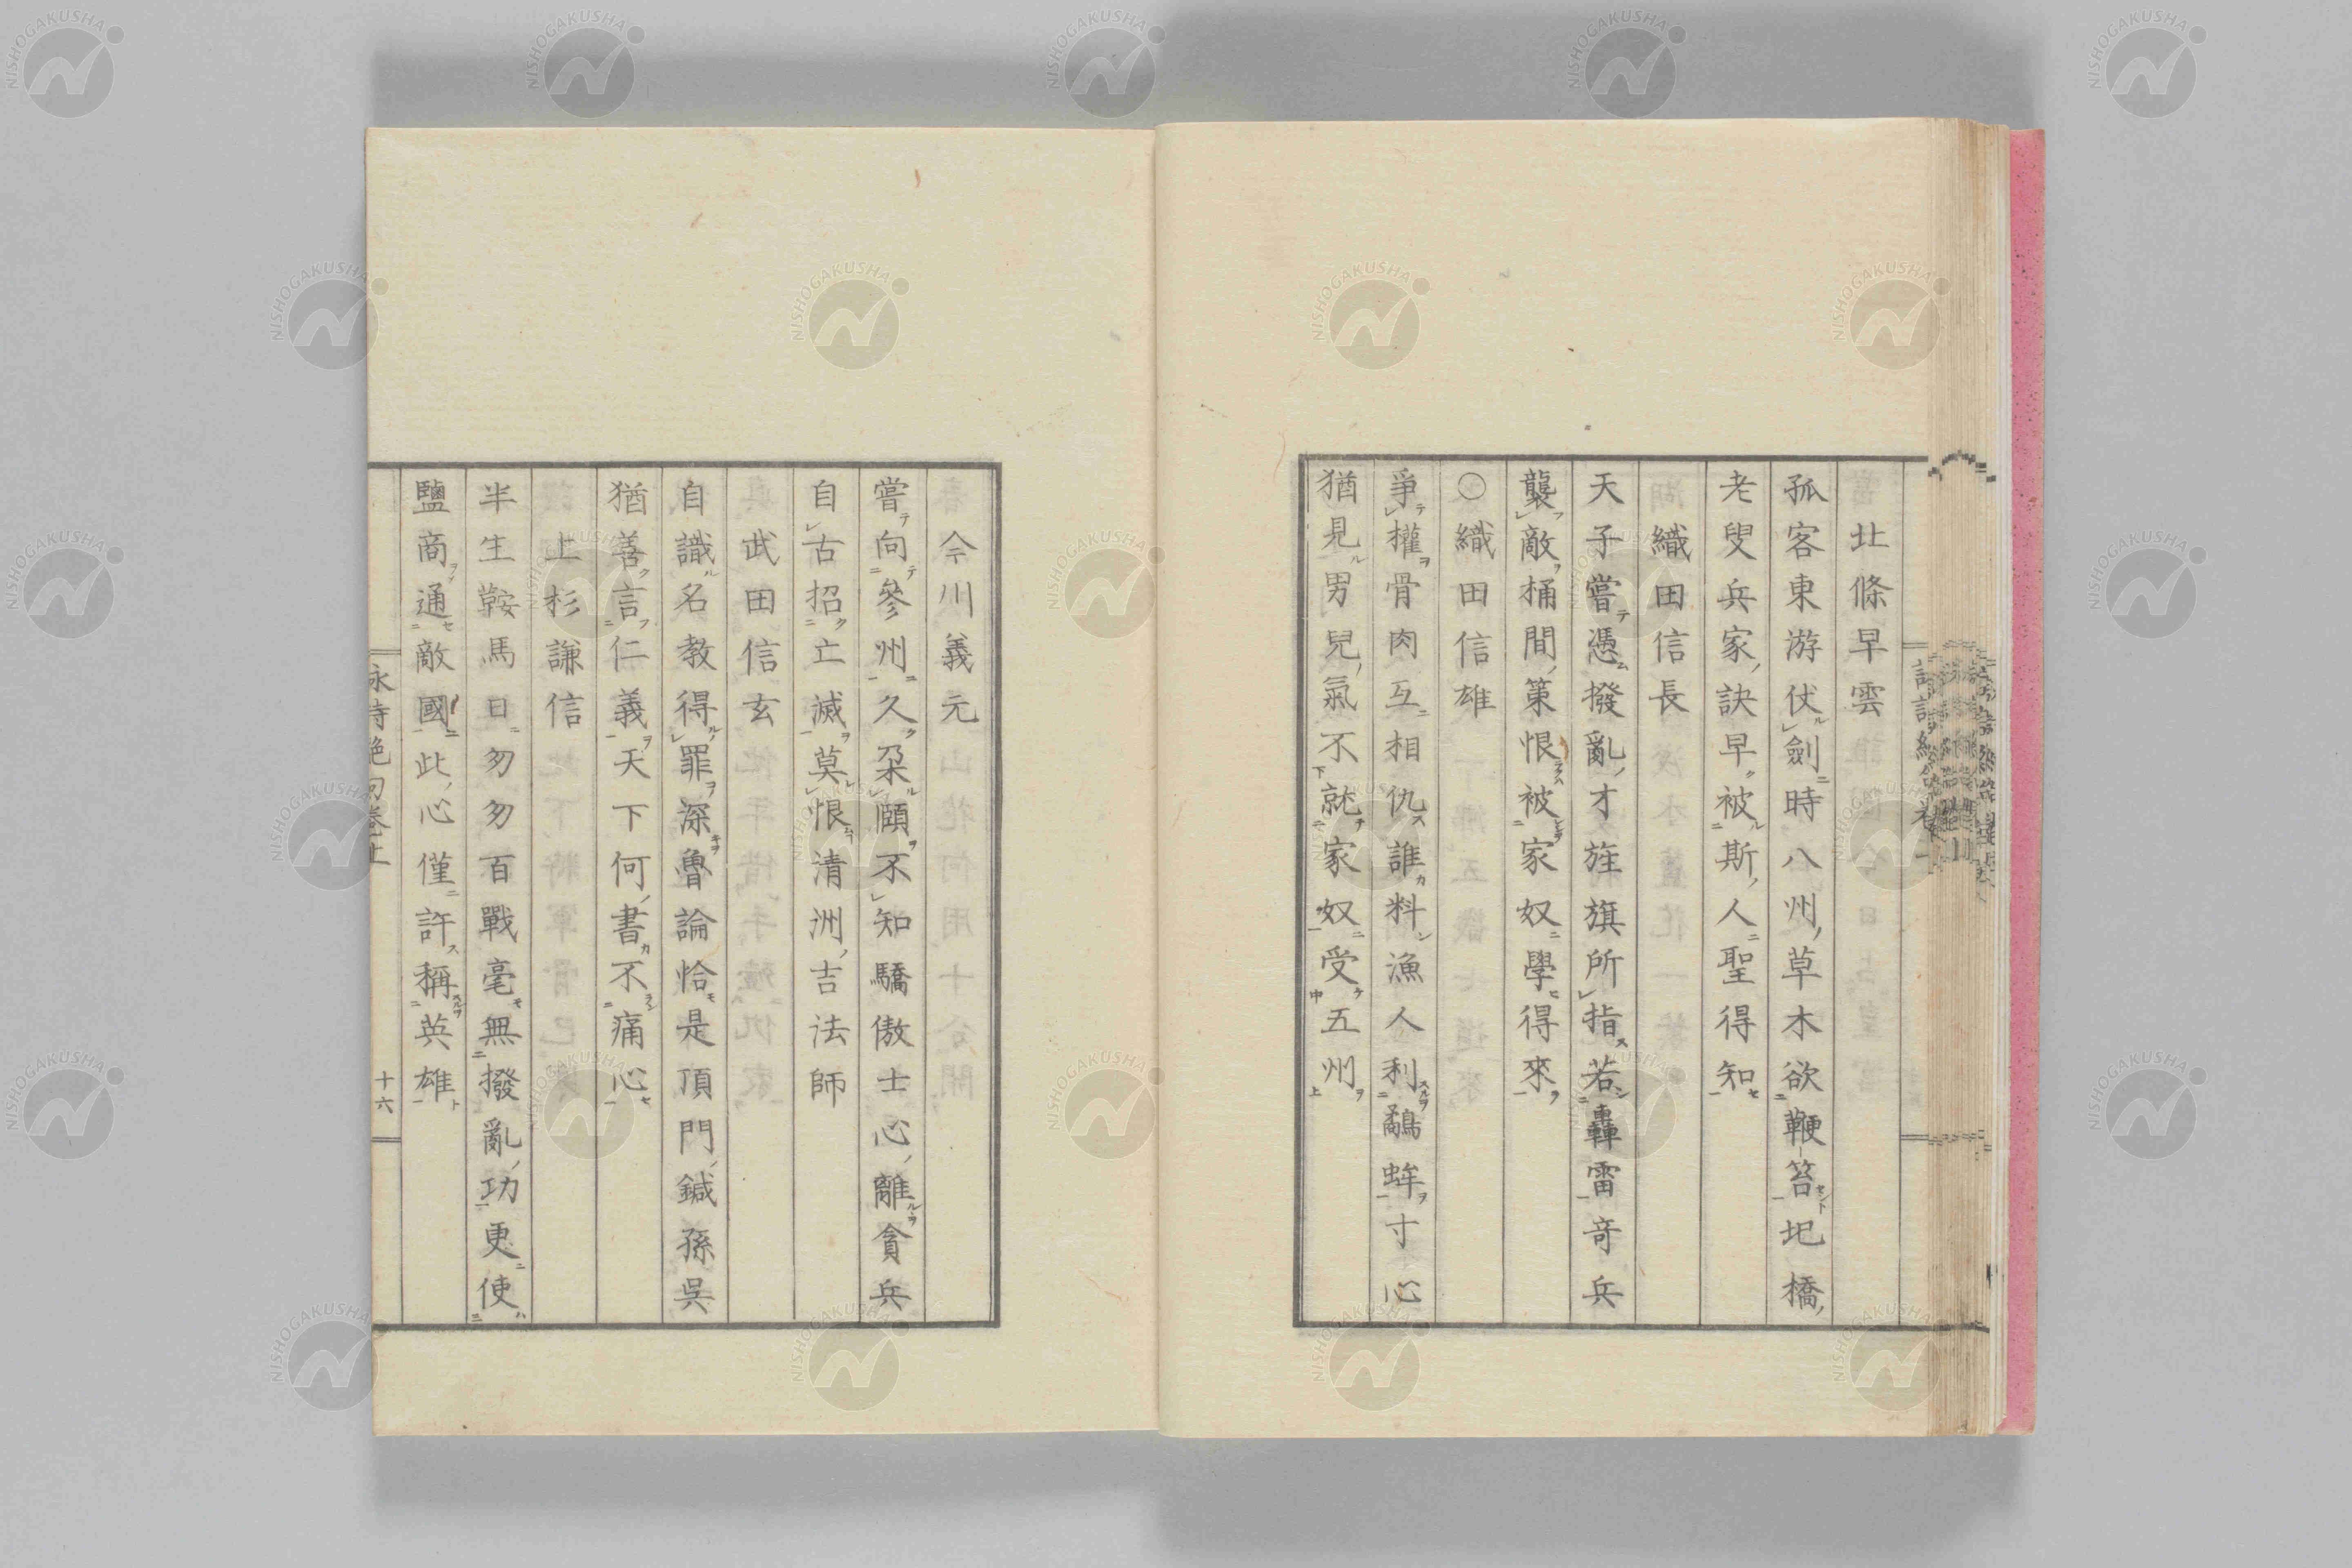 北條早雲
孤客東游伏劍時八州草木欲鞭笞圯橋
老叟兵家訣早被斯人聖得知
織田信長
天子嘗憑撥亂才旌旗所指若轟雷奇兵
襲敵桶間策恨被家奴學得來
○織田信雄
爭權骨肉互相仇誰料漁人利鷸蚌寸心
猶見男兒氣不就家奴受五州
今川義元
嘗向參州久朶頤不知驕傲士心離貪兵
自古招亡滅莫恨清洲吉法師
武田信玄
自識名教得罪深魯論恰是頂門鍼孫吳
猶善言仁義天下何書不痛心
上杉謙信
半生鞍馬日匆匆百戰毫無撥亂功更使
鹽商通敵國此心僅許稱英雄
詠詩絶句卷上
十六
NISHOGAKUSHA